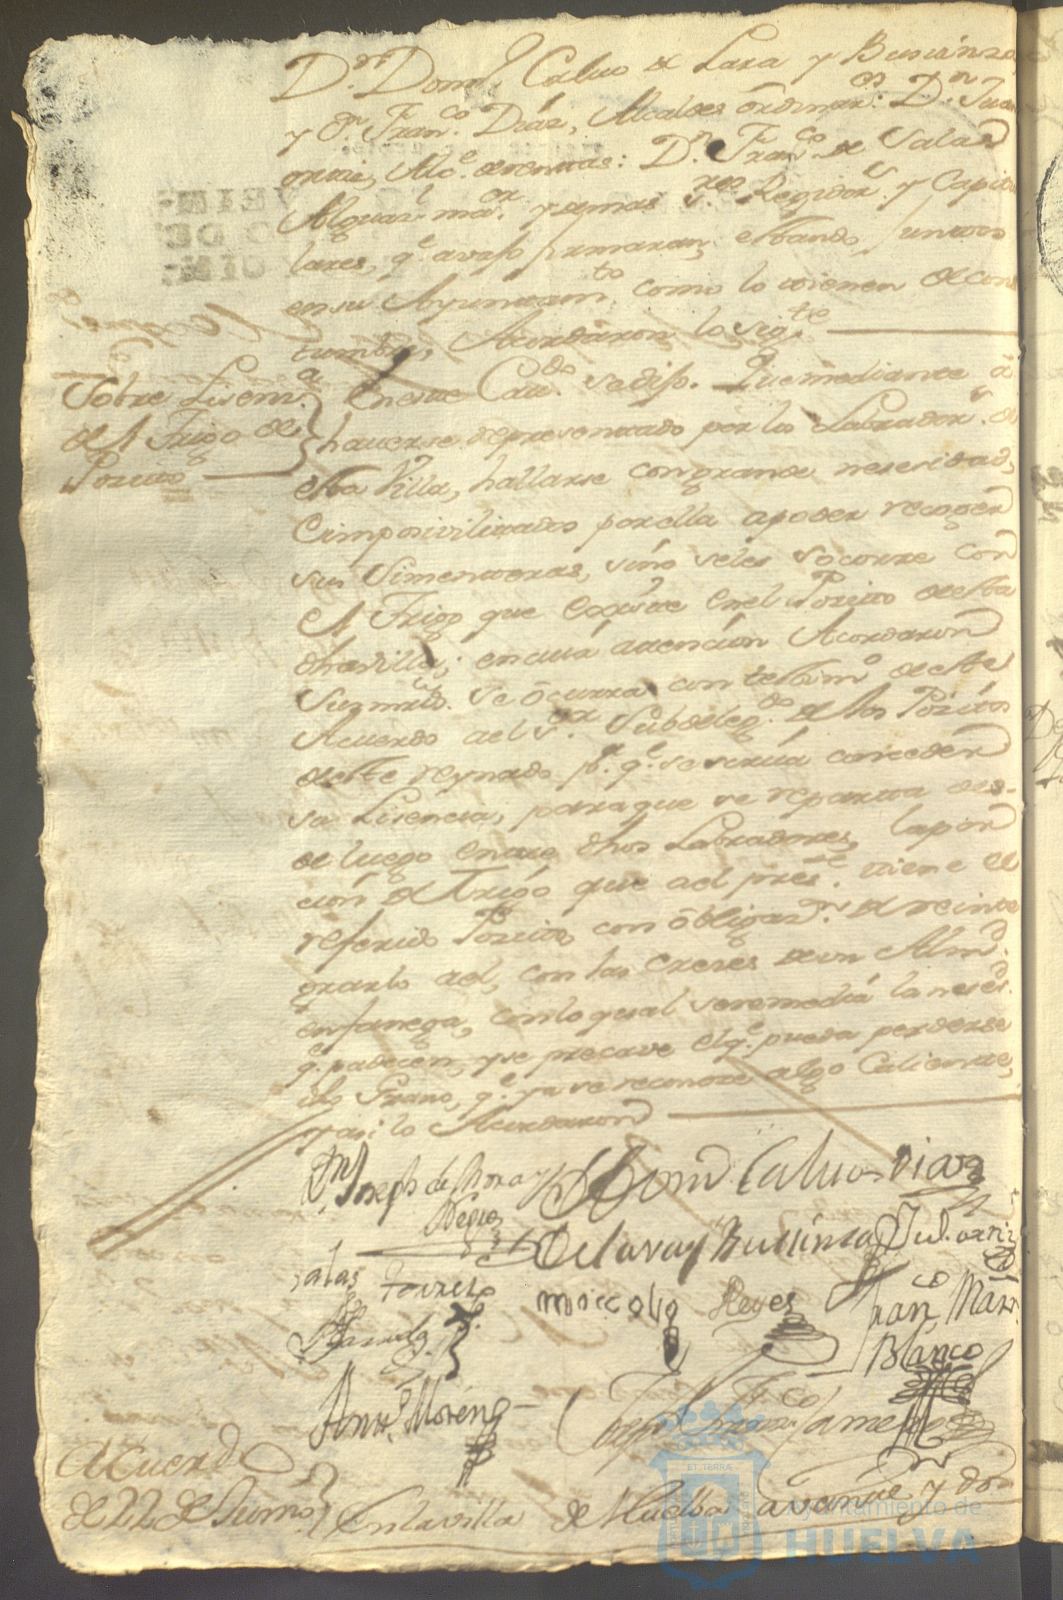 D.ⁿ Dom.º Calvo de Lara y Businza
y D.ⁿ Fran.co Diaz, Alcaldes ôrdinar.os D.ⁿ Juan
Alc.e de rentas: D.ⁿ Fran.co de Salas
Alguaz.l ma.or y demas S.res Regidor.s y Capitu
lares, q.e avajo firmaran, estando juntos
en su Ayuntam.to como lo tienen de cos
tumbre, Acordaron lo sig.te
Sobre Lisenz.a
del Trigo de
Pocito
En este Cav.do se dijo. Que mediante â
haverse representado por los Labrador.s de
esta Villa, hallarse con grande nesesidad,
e imposivilitados por ella a poder recoger
sus Simenteras, sino se les socorre con
el Trigo que existe en el Pocito de esta
dha villa; en cuia atencion Acordaron
Sus mrds. se ôcurra con testim.º de este
Acuerdo al S.or Subdeleg.do de los Pocitos
de este reynado p.a q.e se sirva conceder
su Lisencia, para que se reparta des-
de luego entre dhos Labradores, la por
cion de Trigo que al pres.te tiene el
referido Pocito, con ôbligaz.on de reinte
grarlo a el, con las creses de un Almd.
en fanega, con lo qual se remedia la neses.d
q.e padecen, y se precave el q.e pueda perderse
dho Grano, q.e ya se reconoce algo Caliente,
y asi lo Acordaron
D.ⁿ Joseph de Mora y
Negro
Dom.º Calvo
Diaz
de Lara y Businza
Salas
torres
Moreno
Reyes
Fran.co Mar.n
Blanco
Ant.º Moreno
Acuerdo
de 22 de Junio
En la villa de Huelba a veinte y dos
Ayuntamiento de
HUELVA